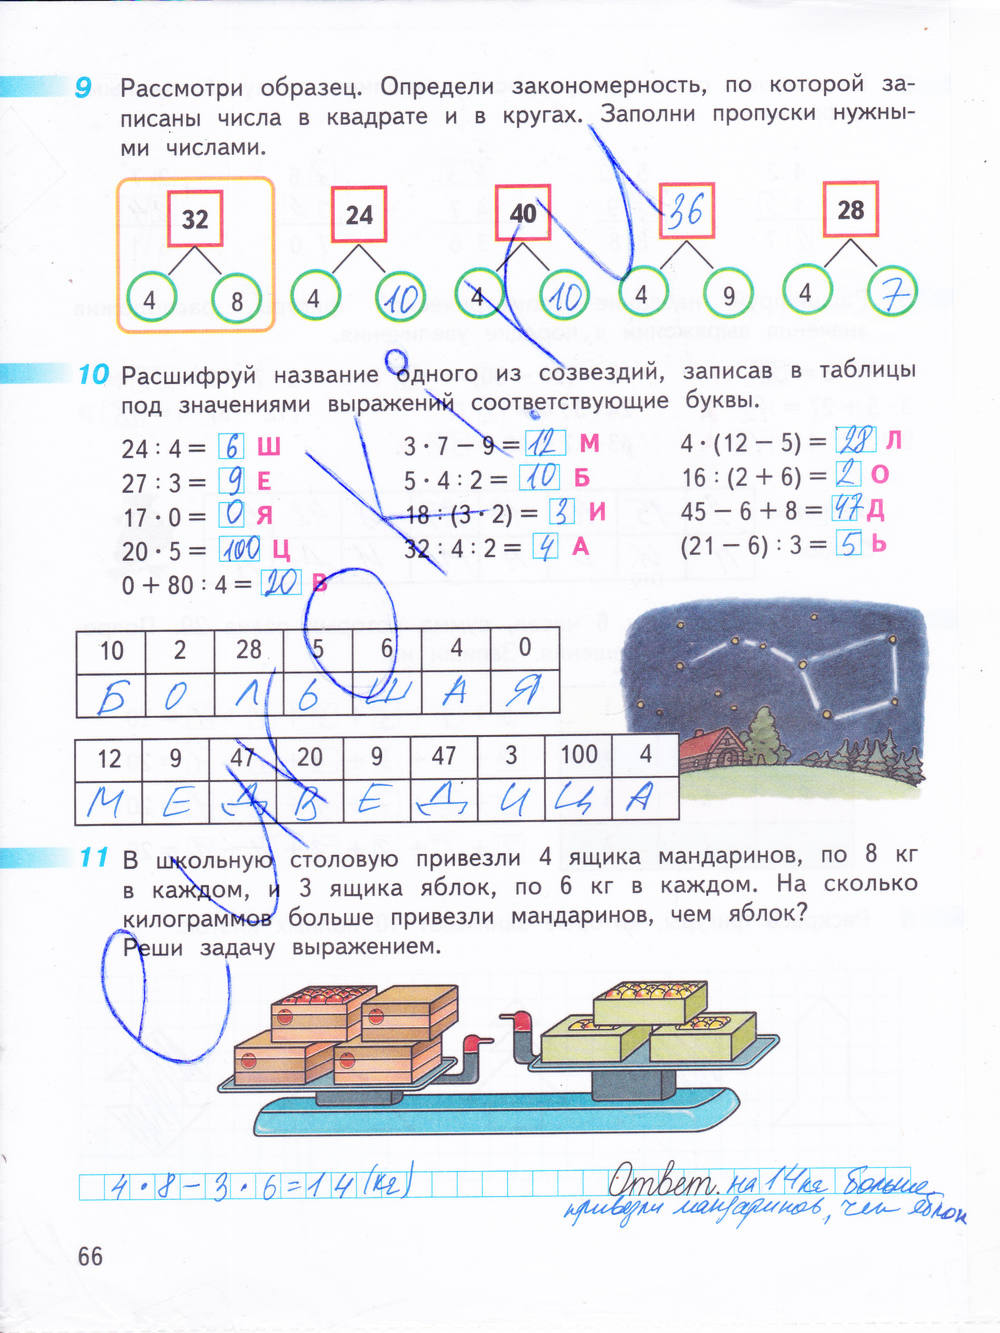 9 Рассмотри образец. Определи закономерность, по которой за-
писаны числа в квадрате и в кругах. Заполни пропуски нужны-
ми числами.
32 24 40 36 28
4 8 4 10 4 10 4 9 4 7
10 Расшифруй название одного из созвездий, записав в таблицы
под значениями выражений соответствующие буквы.
24 : 4 = 6 Ш 3 · 7 − 9 = 12 М 4 · (12 − 5) = 28 Л
27 : 3 = 9 Е 5 · 4 : 2 = 10 Б 16 : (2 + 6) = 2 О
17 · 0 = 0 Я 18 : (3 · 2) = 3 И 45 − 6 + 8 = 47 Д
20 · 5 = 100 Ц 32 : 4 : 2 = 4 А (21 − 6) : 3 = 5 Ь
0 + 80 : 4 = 20 В
10 2 28 5 6 4 0
Б О Л Ь Ш А Я
12 9 47 20 9 47 3 100 4
М Е Д В Е Д И Ц А
11 В школьную столовую привезли 4 ящика мандаринов, по 8 кг
в каждом, и 3 ящика яблок, по 6 кг в каждом. На сколько
килограммов больше привезли мандаринов, чем яблок?
Реши задачу выражением.
4 · 8 − 3 · 6 = 14 (кг) Ответ. на 14 кг больше
привезли мандаринов, чем яблок
66